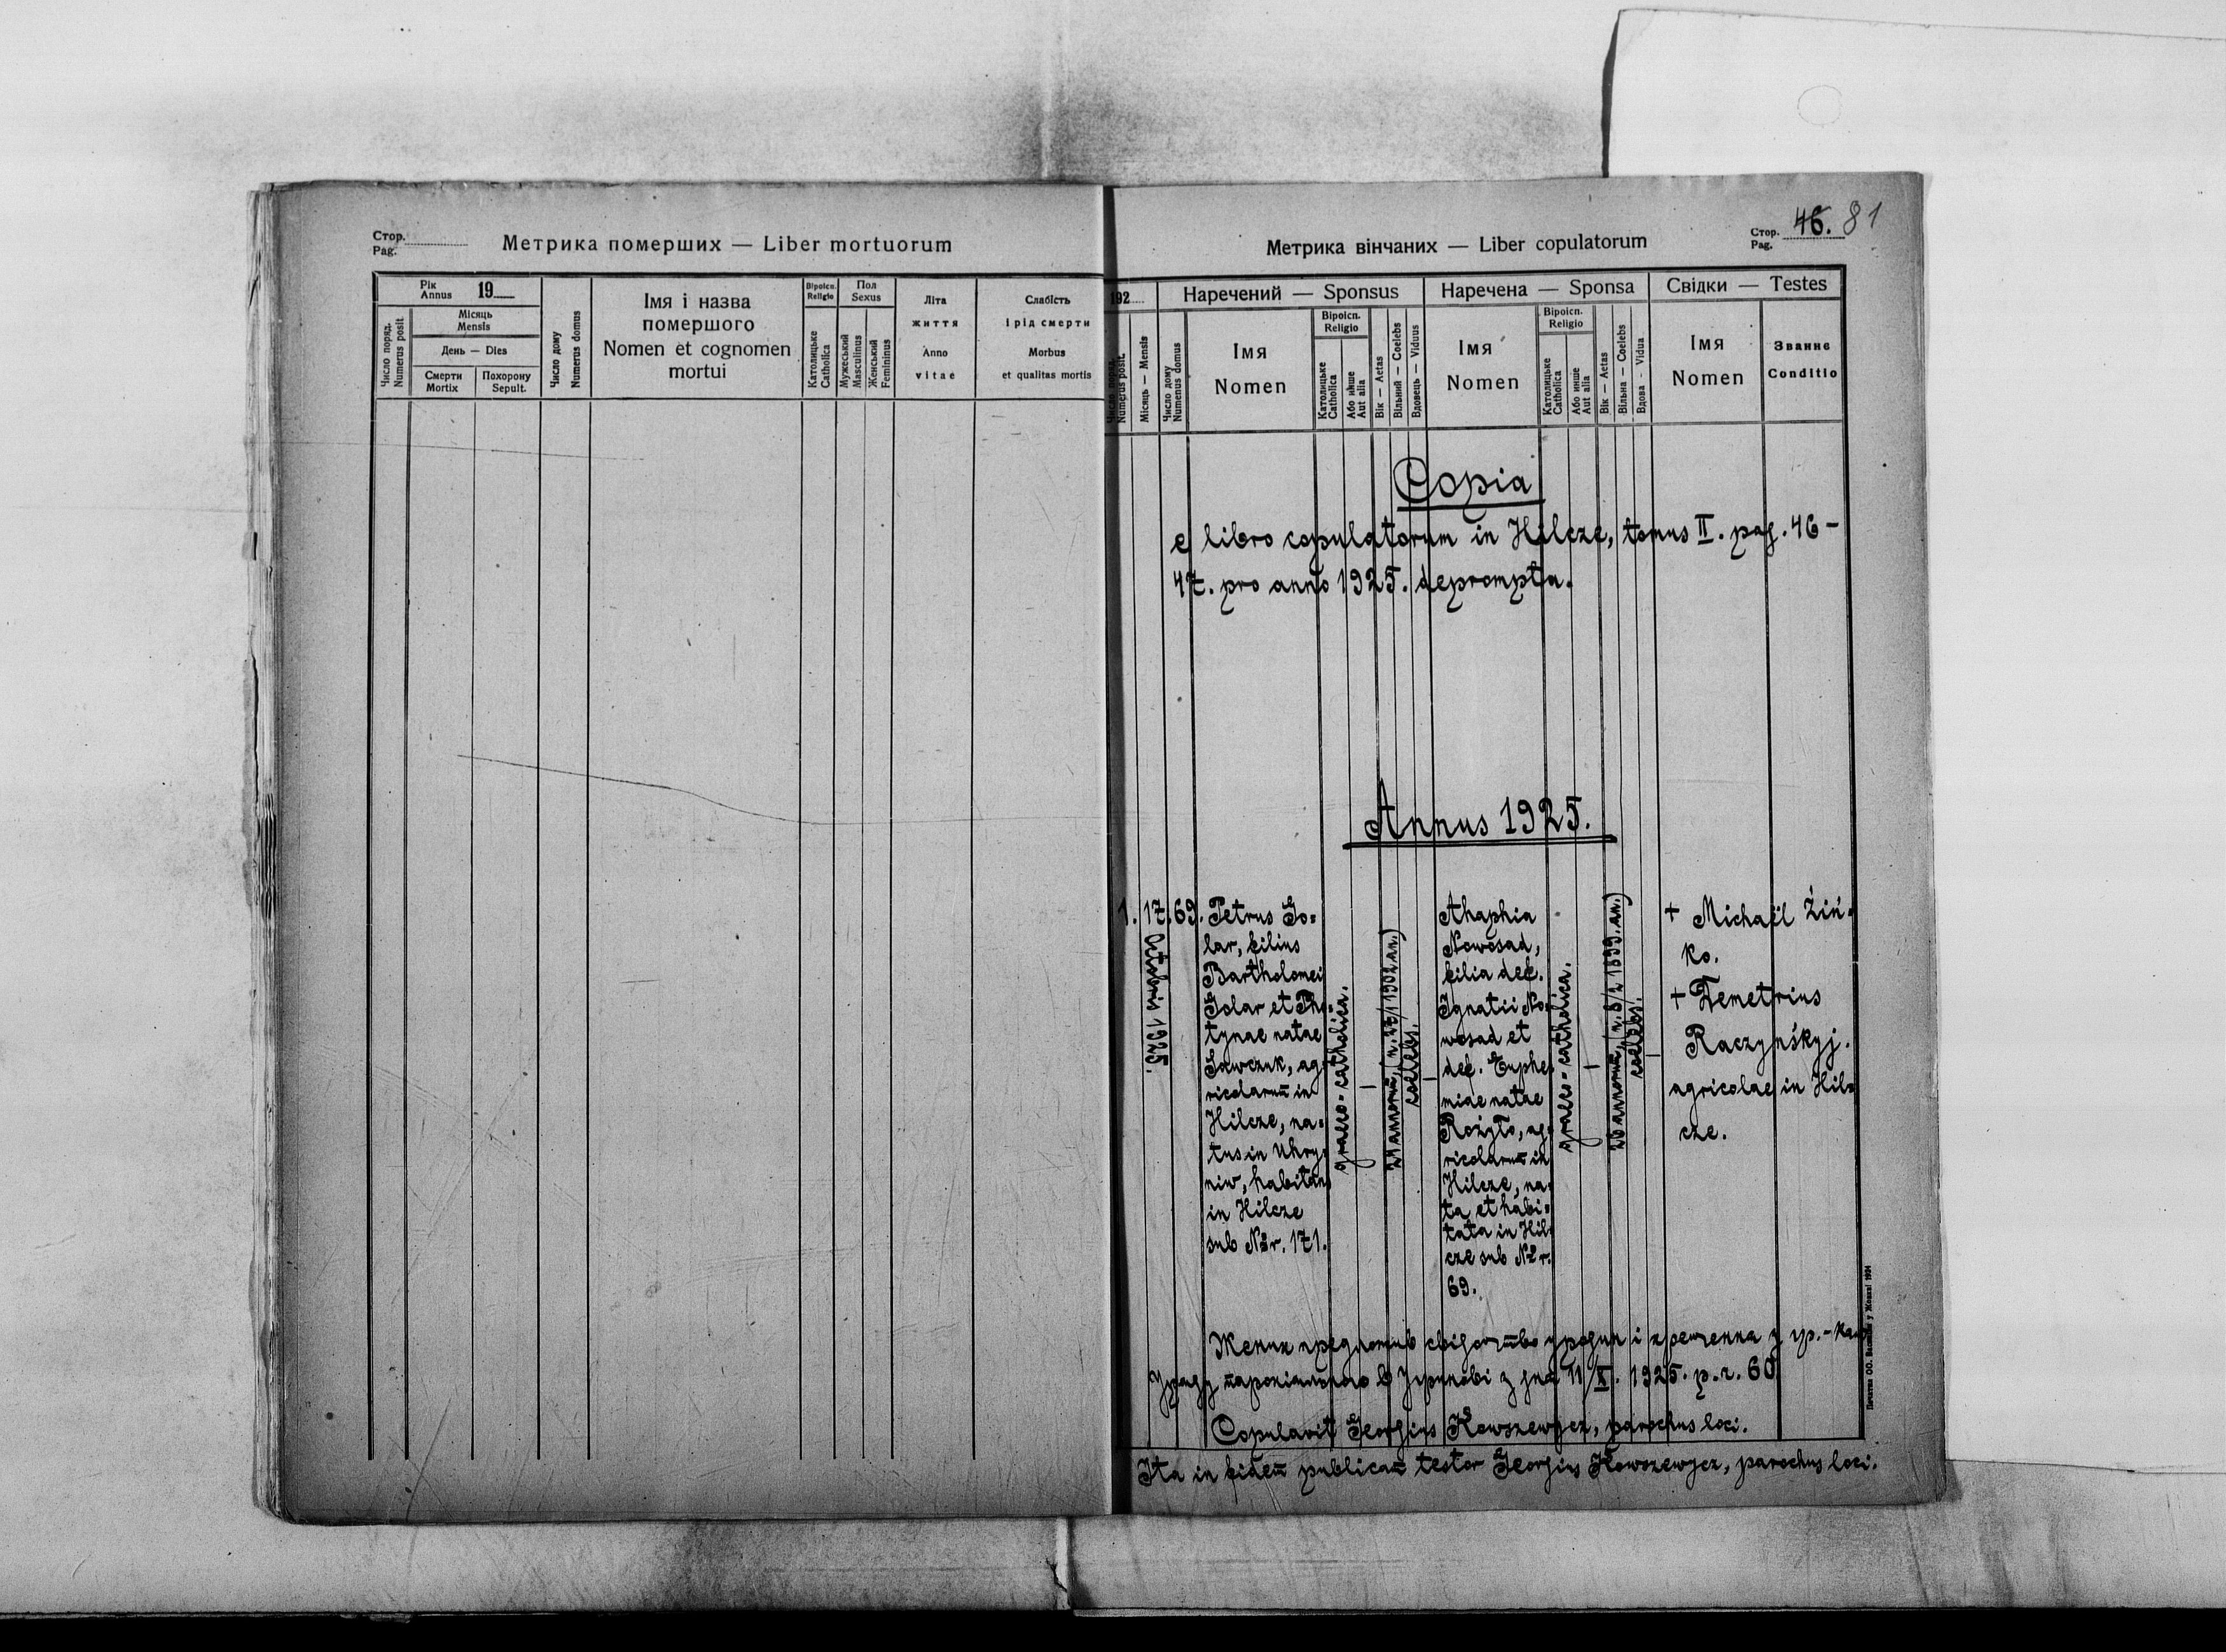 Стор.
Pag.
Метрика померших — Liber mortuorum
Рік
Annus 19
Місяць
Mensis
День — Dies
Число поряд.
Numerus posit.
Смерти
Mortix
Похорону
Sepult.
Число дому
Numerus domus
Імя і назва
помершого
Nomen et cognomen
mortui
Віроісп.
Religio
Католицьке
Catholica
Пол
Sexus
Мужеський
Masculinus
Женський
Femininus
Літа
життя
Anno
vitae
Слабість
і рід смерти
Morbus
et qualitas mortis
Метрика вінчаних — Liber copulatorum
Стор.
Pag. 46. 81
192
Число поряд.
Numerus posit.
Місяць — Mensis
Число дому
Numerus domus
Наречений — Sponsus
Імя
Nomen
Віроісп.
Religio
Католицьке
Catholica
Або инше
Aut alia
Вік — Aetas
Вільний — Coelebs
Вдовець — Viduus
Наречена — Sponsa
Імя
Nomen
Віроісп.
Religio
Католицьке
Catholica
Або инше
Aut alia
Вік — Aetas
Вільна — Coelebs
Вдова - Vidua
Свідки — Testes
Імя
Nomen
Званнє
Conditio
Copia
e libro copulatorum in Hilcze, tomus II. pag. 46-
47. pro anno 1925. deprompta.
Annus 1925.
1.
17.
Octobris 1925.
69.
Petrus Go=
lar, filius
Bartholomei
Golar et Pho=
tynae natae
Sawczuk, ag=
ricolarum̅ in
Hilcze, na=
tus in Uhry=
niw, habitans
in Hilcze
sub Nr. 171.
graeco-catholica.
—
coelebs.
—
Ahaphia
Nowosad,
filia def.
Ignatii No=
wosad et
def. Euphe=
miae natae
Rożyło, ag=
ricolarum̅ in
Hilcze, na=
ta et habi=
tata in Hil=
cze sub Nr.
69.
graeco-catholica.
—
26 annorum̅, (n. 8/2 1899. an.)
coelebs.
—
+ Michaël Żiń=
ko.
+ Demetrius
Raczyńśkyj.
agricolae in Hil=
cze.
Женик предложив свідоцтво уродин і крещення з гр.-кат.
Уряду парохіяльного в Угринові з дня 11/X. 1925. р. ч. 60.
Copulavit Georgius Kowszewycz, parochus loci.
Ita in fidem̅ publicam̅ testor Georgius Kowszewycz, parochus loci.
Печатня ОО. Василіян у Жовкві 1924